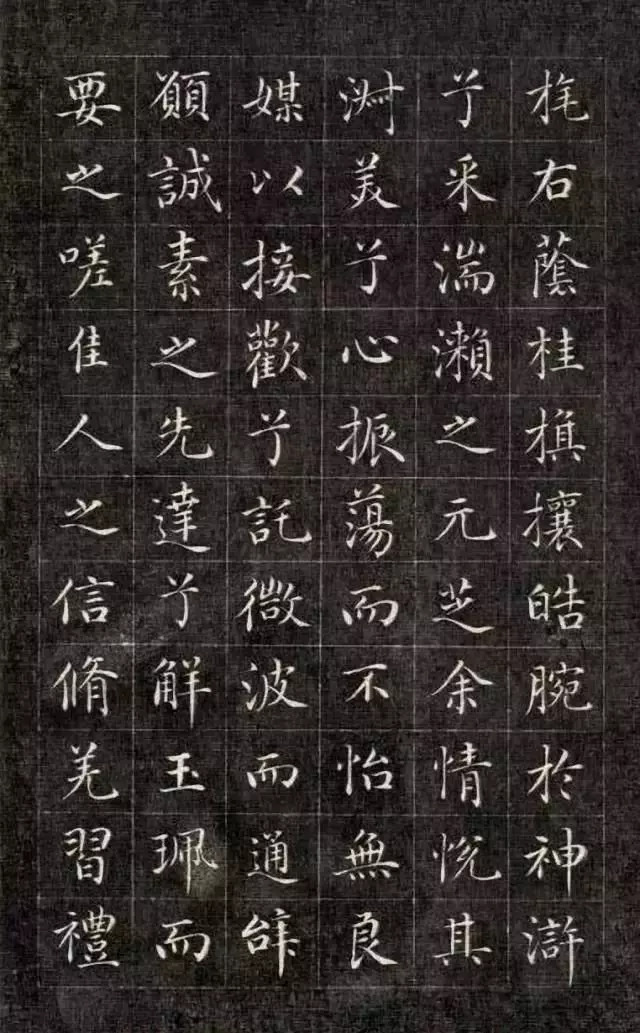 旄右蔭桂旗攘皓腕於神滸
兮采湍瀨之元芝余情悅其
淑美兮心振蕩而不怡無良
媒以接歡兮託微波而通辭
願誠素之先達兮解玉珮而
要之嗟佳人之信脩羌習禮